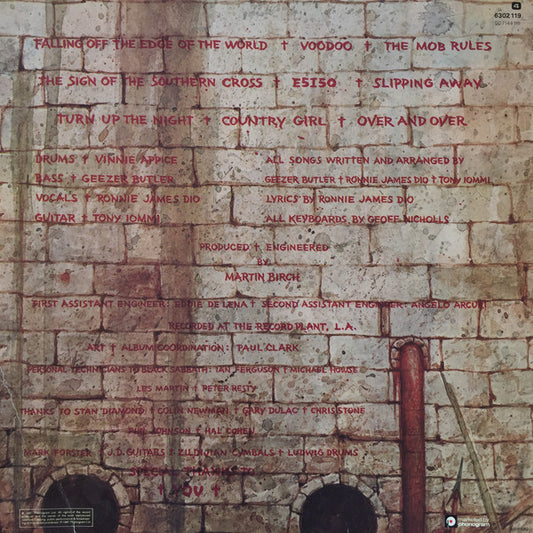 4
6302 119
FALLING OFF THE EDGE OF THE WORLD † VOODOO † THE MOB RULES
THE SIGN OF THE SOUTHERN CROSS † E5150 † SLIPPING AWAY
TURN UP THE NIGHT † COUNTRY GIRL † OVER AND OVER
DRUMS † VINNIE APPICE
BASS † GEEZER BUTLER
VOCALS † RONNIE JAMES DIO
GUITAR † TONY IOMMI
ALL SONGS WRITTEN AND ARRANGED BY
GEEZER BUTLER † RONNIE JAMES DIO † TONY IOMMI
LYRICS BY RONNIE JAMES DIO
ALL KEYBOARDS BY GEOFF NICHOLLS
PRODUCED † ENGINEERED
BY
MARTIN BIRCH
FIRST ASSISTANT ENGINEER: EDDIE DELENA † SECOND ASSISTANT ENGINEER: ANGELO ARCURI
RECORDED AT THE RECORD PLANT, L.A.
ART † ALBUM COORDINATION: PAUL CLARK
PERSONAL TECHNICIANS TO BLACK SABBATH: IAN FERGUSON † MICHAEL HOWSE
LES MARTIN † PETER RESTY
THANKS TO STAN 'DIAMOND' † COLIN NEWMAN † GARY 'DULAC' † CHRIS STONE
PHIL JOHNSON † HAL COHEN
MARK FORSTER † J.D. GUITARS † ZILDJIAN CYMBALS † LUDWIG DRUMS
SPECIAL THANKS TO
† YOU †
marketed by
phonogram